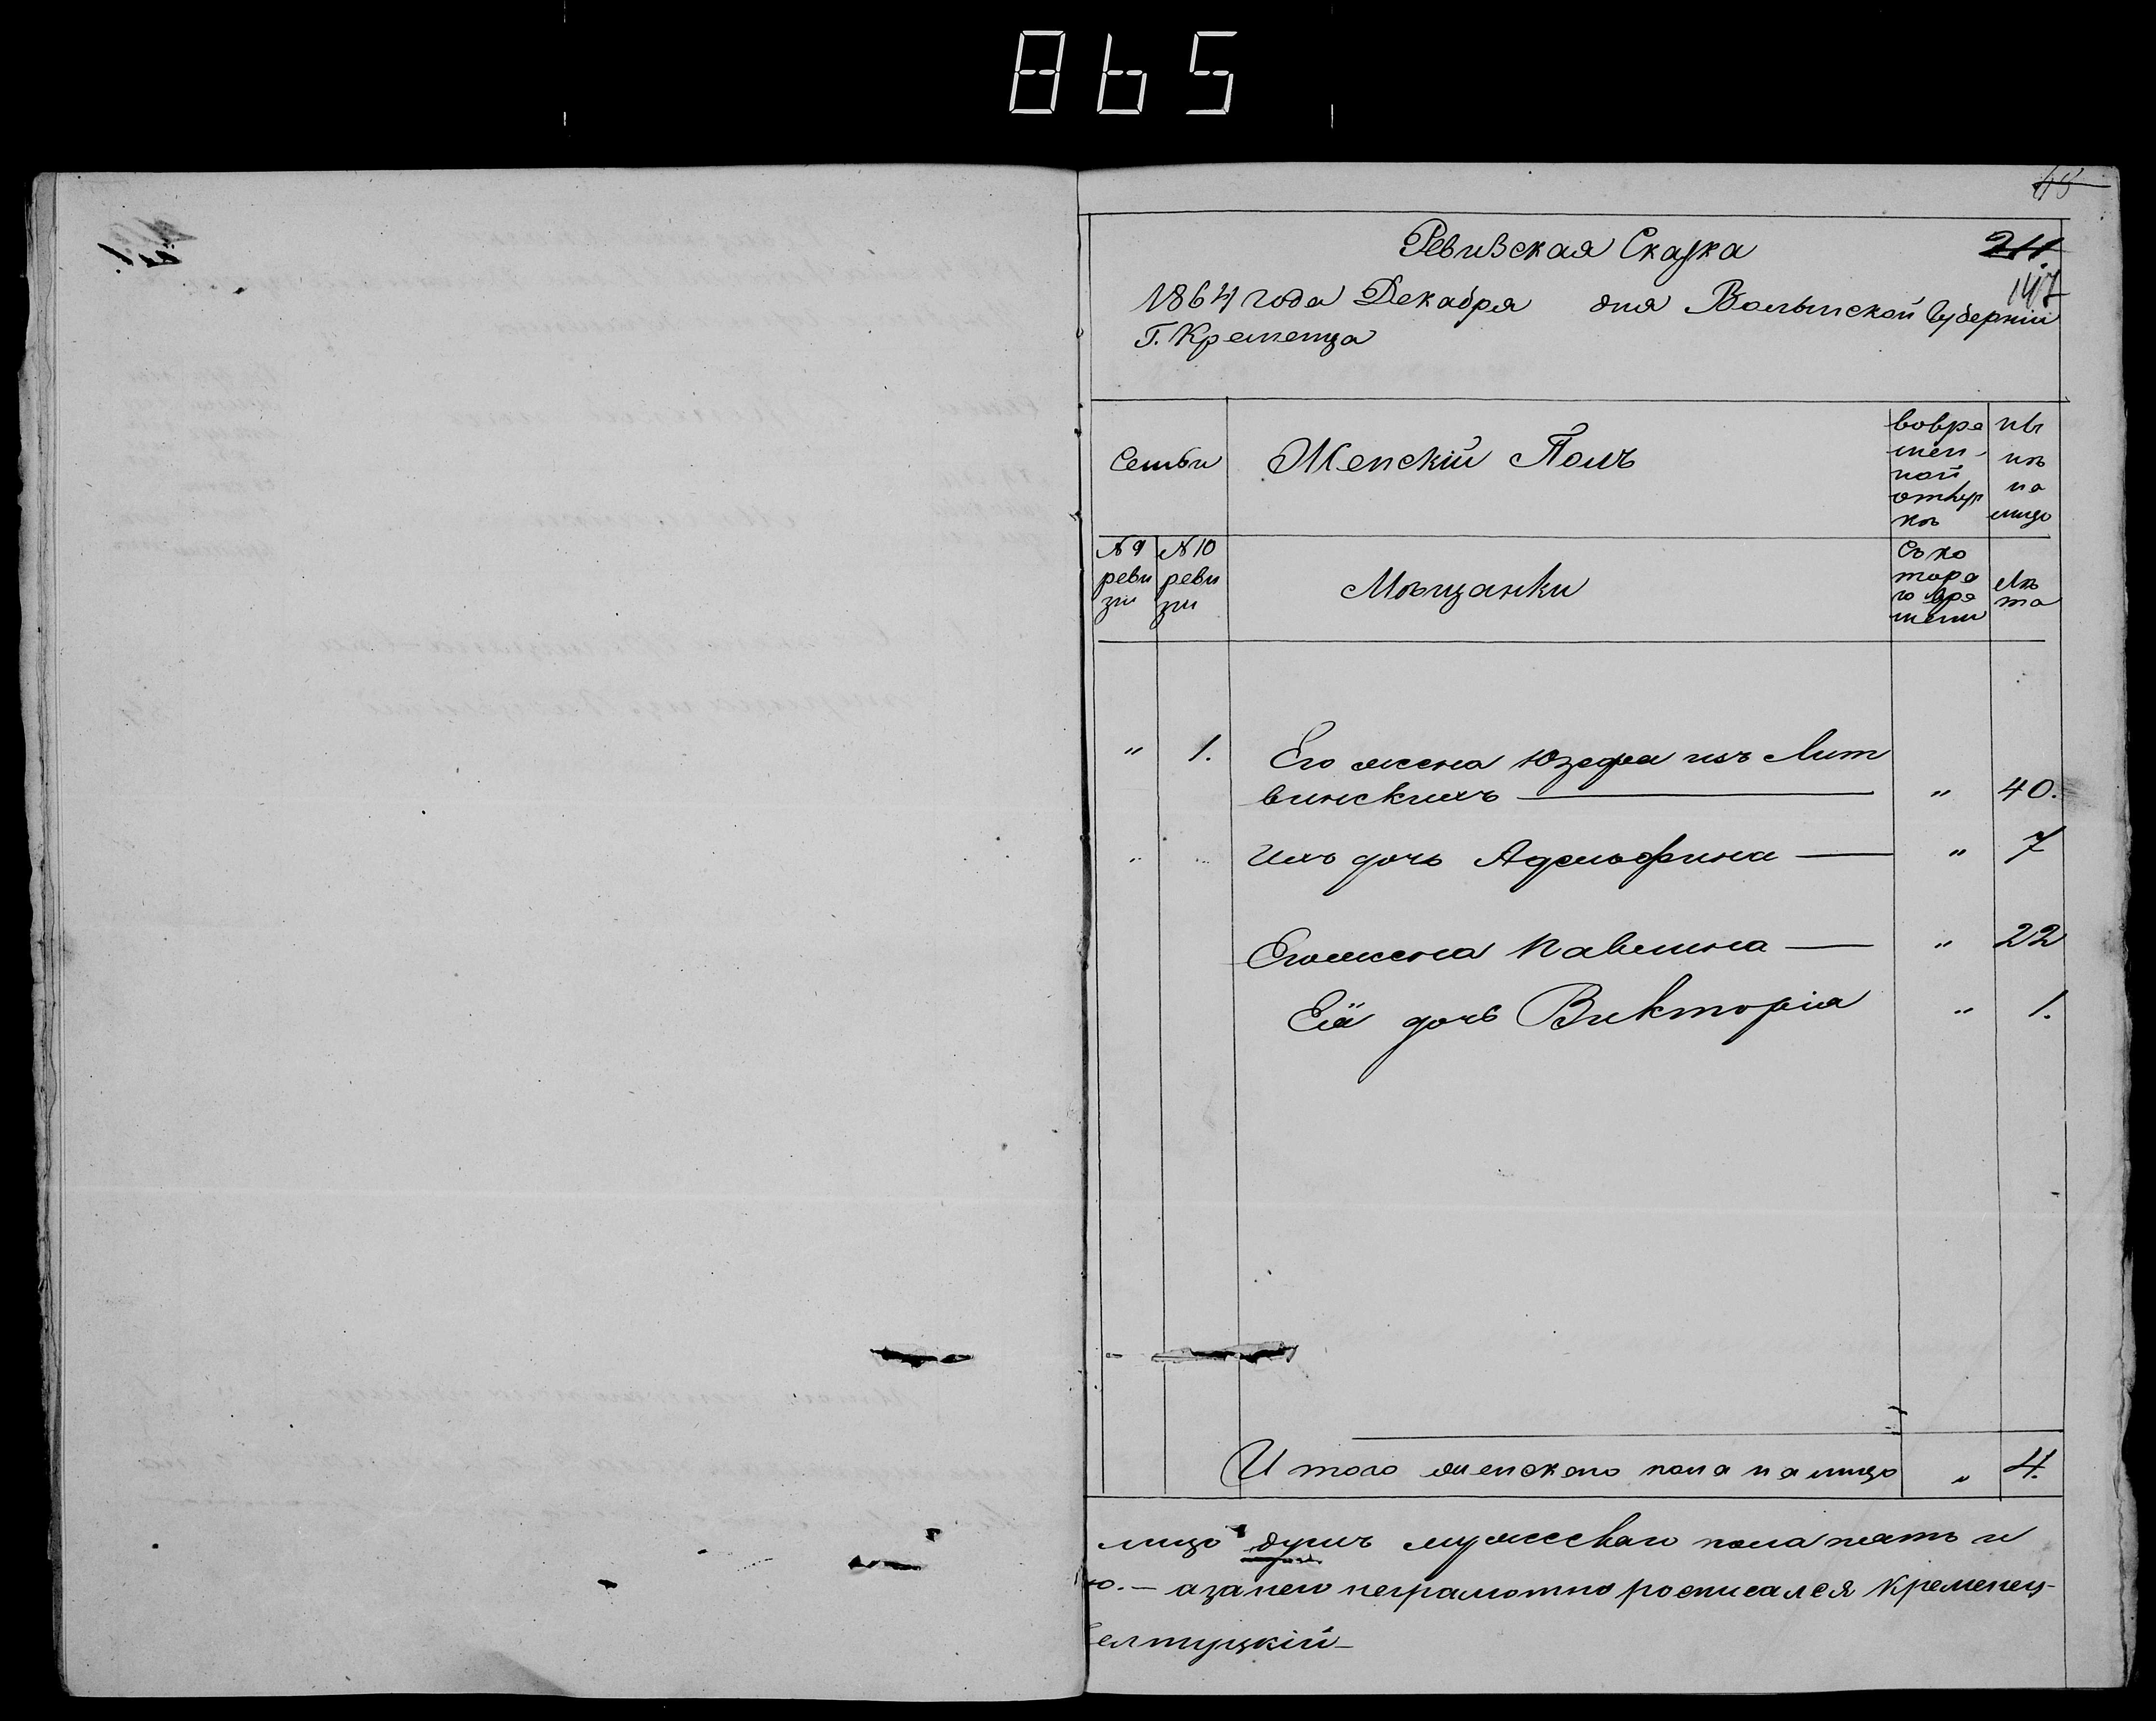 865
Ревизская Сказка
147
1864 года Декабря дня Волынской Губерніи
Г. Кременца
Семьи
Женскій Полъ
вовре
мен-
ной
отлуч
кѣ
ны
нѣ
на
лицо
№ 9
реви
зіи
№ 10
реви
зіи
Мѣщанки
Съ ко
тора
го вре
мени
Лѣ
та
" 1. Его жена Юзефа изъ Лит
винскихъ — " 40.
Ихъ дочь Адольфина — " 7
Его жена Павлина — " 22
Еія дочь Викторія " 1.
И того женского пола на лицо " 4.
лицо душъ мужескаго пола пять и
ю. — а за него неграмотно росписался Кременец-